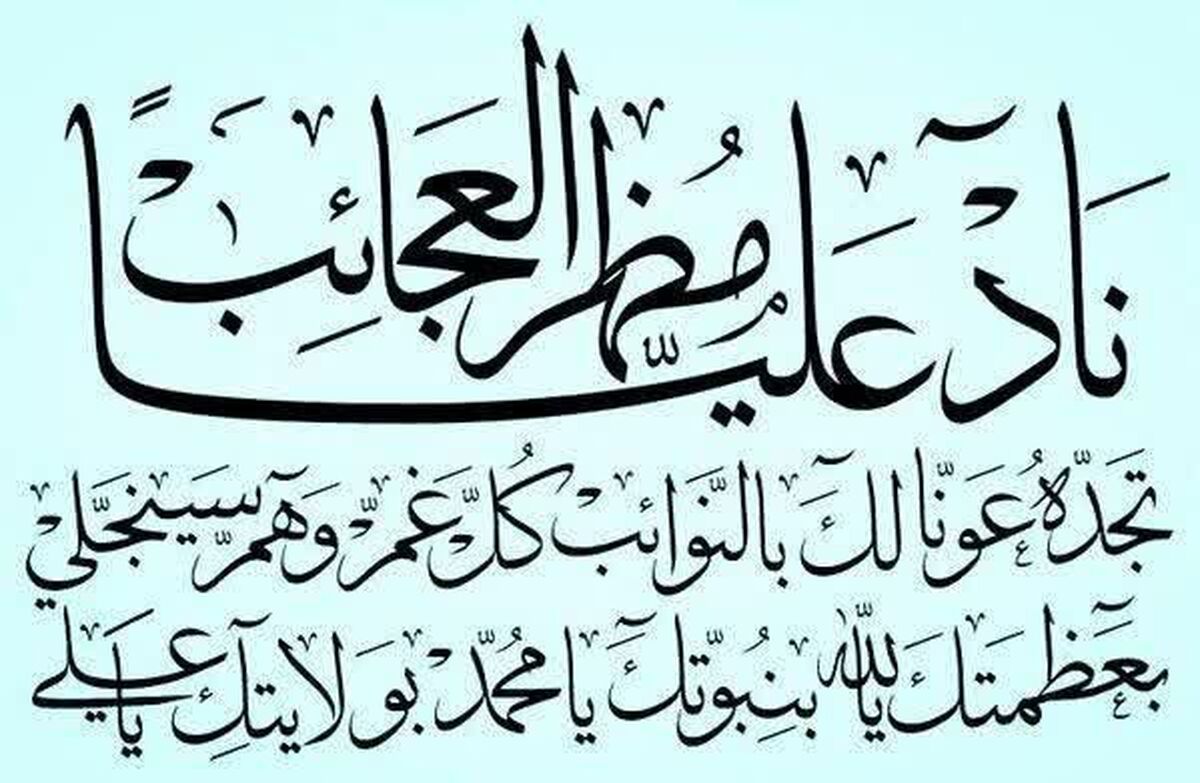 نَادِ عَلِيًّا مُظهر العَجائِبَ
تَجِدْهُ عَونًا لكَ بالنَّوائب كُلّ غَمّ وَهَمّ سَينجَلي
بعَظَمَتكَ يا الله بنبُوَّتكَ يا مُحمّد بوَلايتكَ يا عَلي